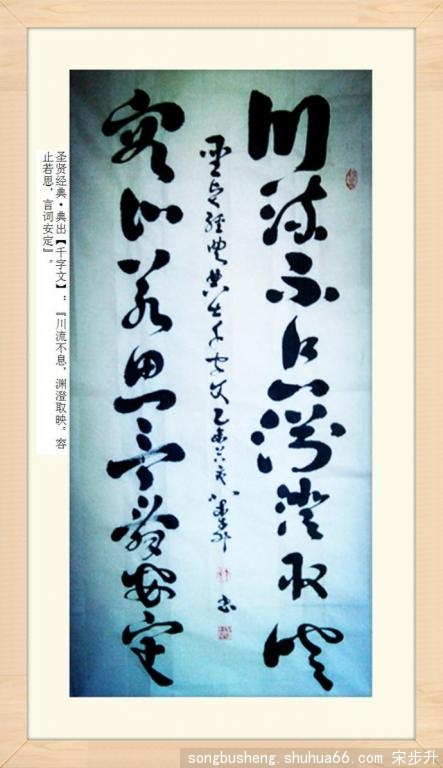 川流不息渊澄取映
聖賢經典典出千字文乙未
容止若思言辞安定
圣贤经典·典出【千字文】：『川流不息，渊澄取映。容
止若思，言词安定』。
songbusheng.shuhua66.com 宋步升